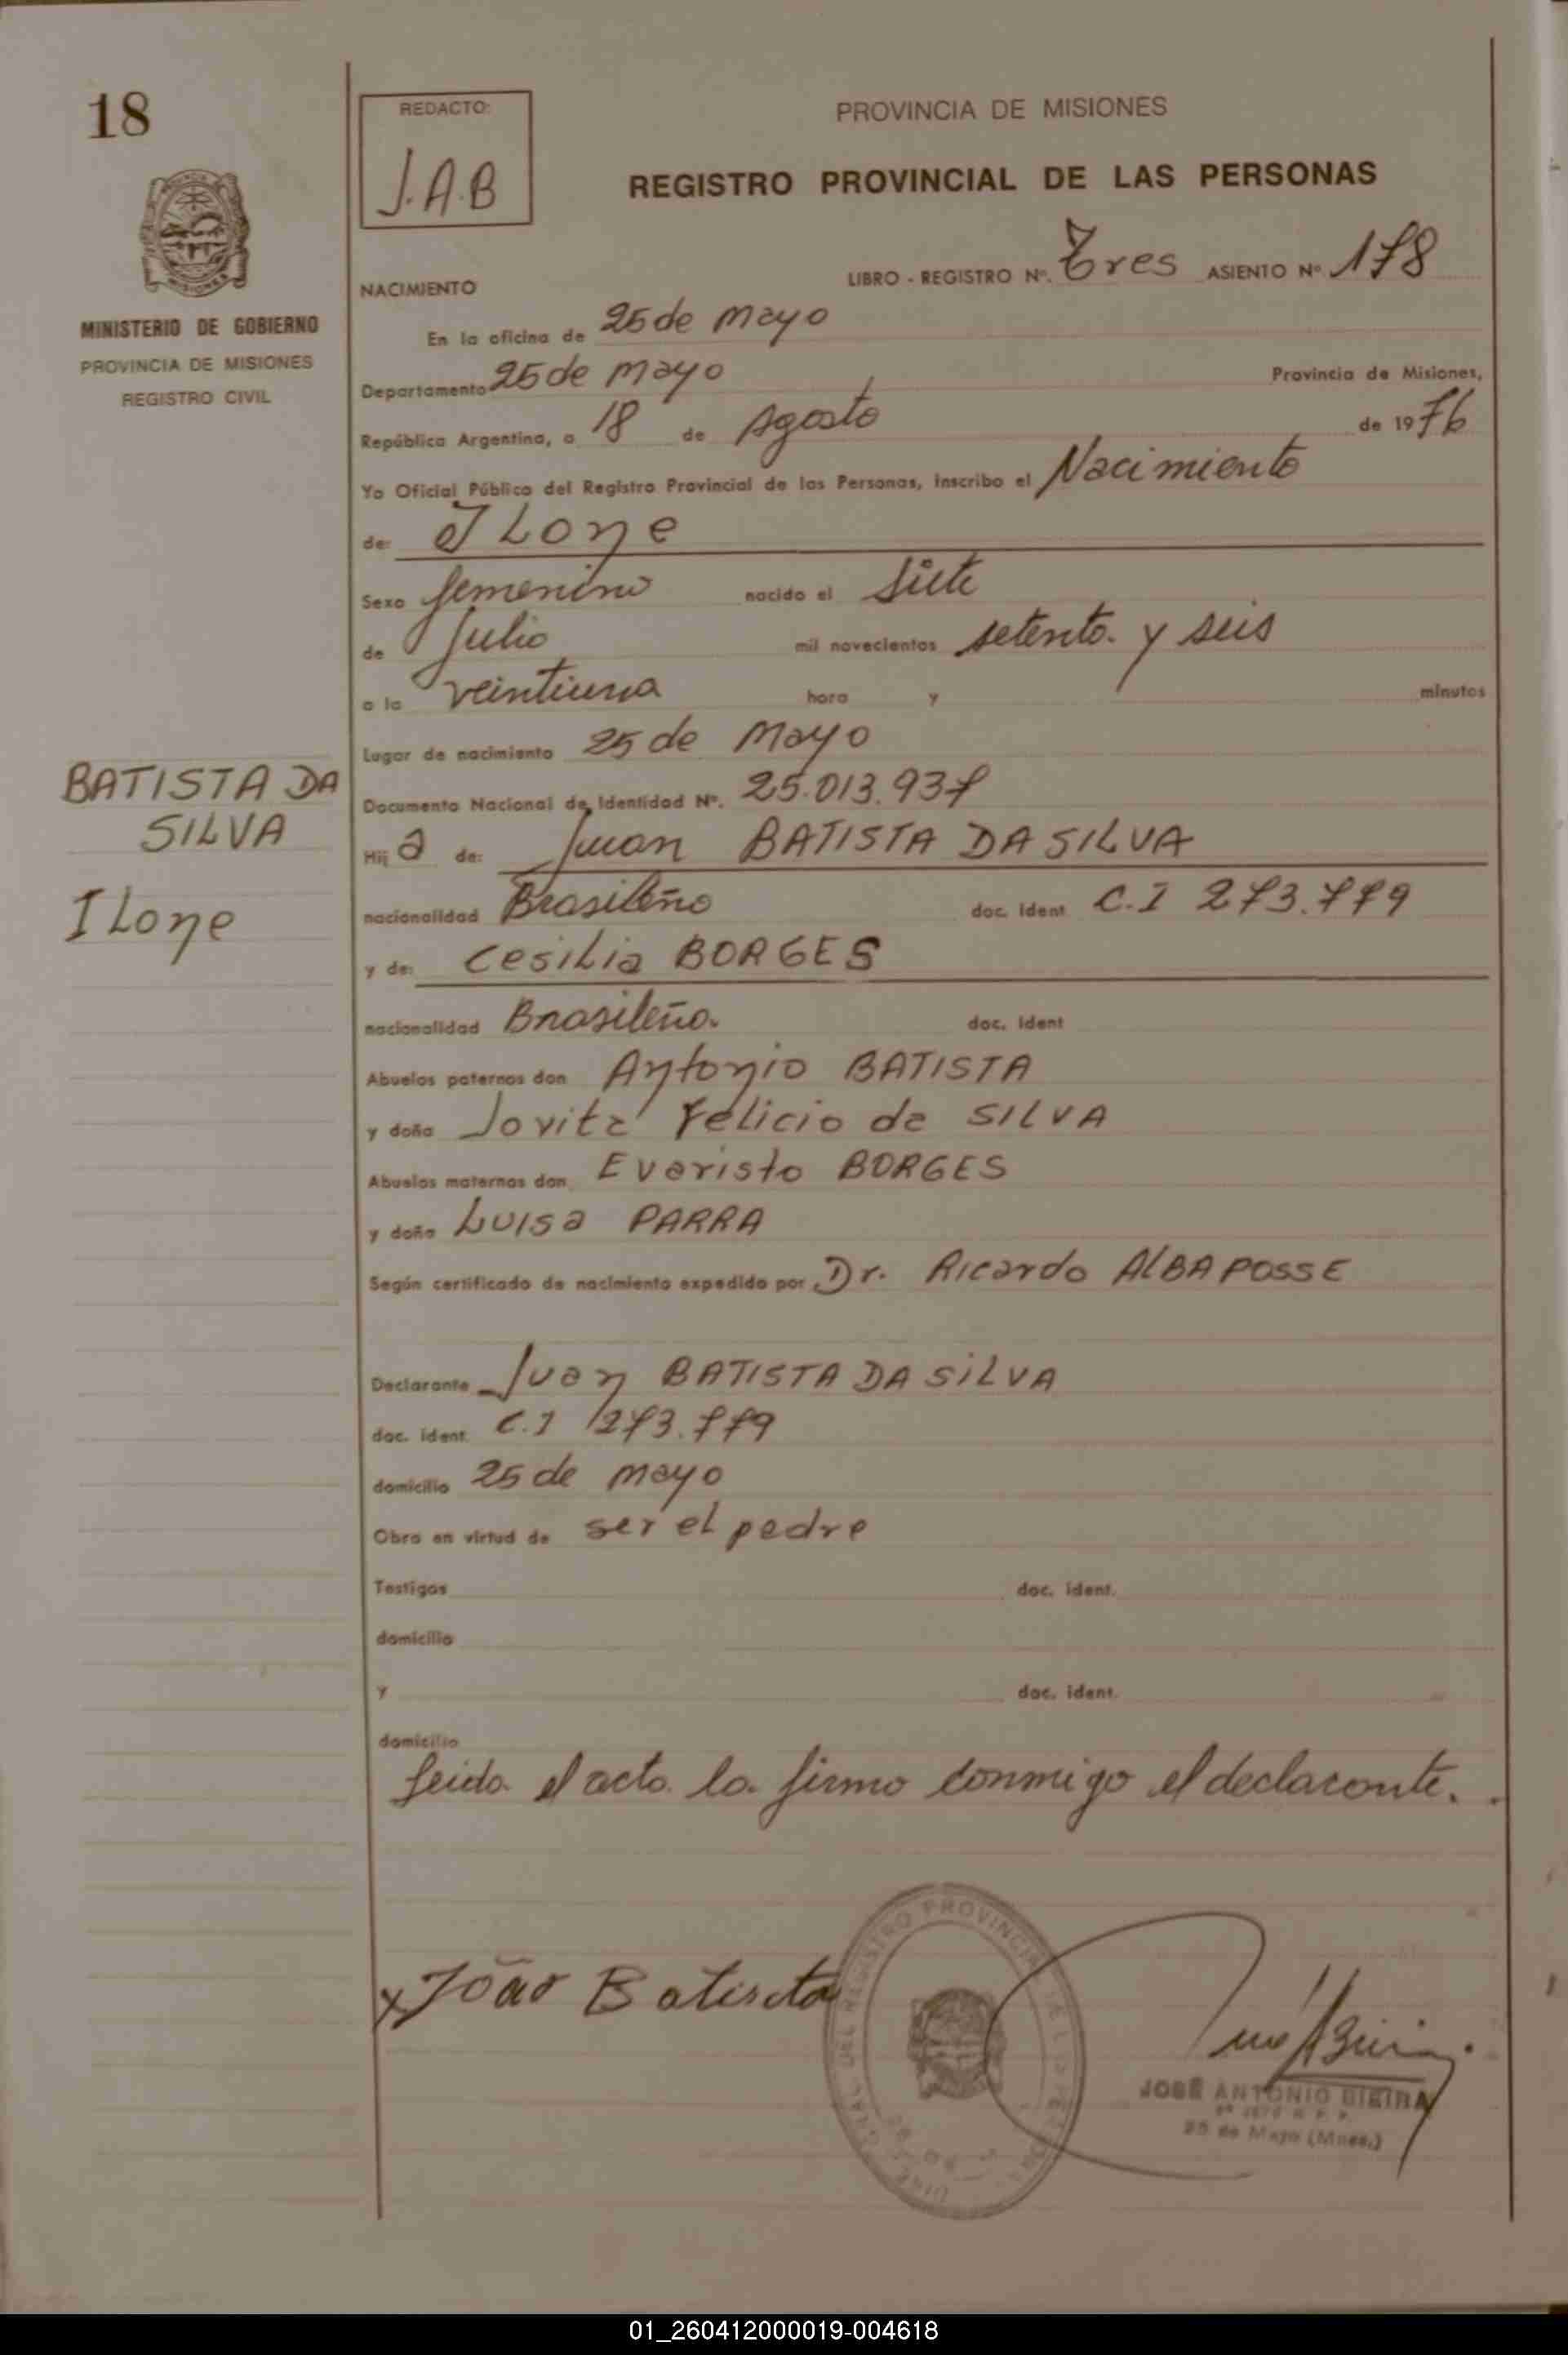 18
MINISTERIO DE GOBIERNO
PROVINCIA DE MISIONES
REGISTRO CIVIL
BATISTA DA
SILVA
ILone
REDACTO:
J.A.B
PROVINCIA DE MISIONES
REGISTRO PROVINCIAL DE LAS PERSONAS
LIBRO - REGISTRO Nº. Tres ASIENTO Nº 178
NACIMIENTO
En la oficina de 25 de Mayo
Departamento 25 de Mayo Provincia de Misiones,
República Argentina, a 18 de Agosto de 1976
Yo Oficial Público del Registro Provincial de las Personas, inscribo el Nacimiento
de: ILone
Sexo femenino nacido el siete
de Julio mil novecientos setenta y seis
a la veintiuna hora y minutos
Lugar de nacimiento 25 de Mayo
Documento Nacional de Identidad Nº. 25.013.937
Hij a de: Juan BATISTA DA SILVA
nacionalidad Brasileño doc. ident C.I 273.779
y de: Cesilia BORGES
nacionalidad Brasileña. doc. ident
Abuelos paternos don Antonio BATISTA
y doña Jovita Felicio da SILVA
Abuelos maternos don Evaristo BORGES
y doña Luisa PARRA
Según certificado de nacimiento expedido por Dr. Ricardo ALBA POSSE
Declarante Juan BATISTA DA SILVA
doc. ident. C.I 273.779
domicilio 25 de Mayo
Obra en virtud de ser el padre
Testigos doc. ident.
domicilio
y doc. ident.
domicilio
Leida el acta la firma conmigo el declarante.
x João Batista
REGISTRO PROVINCIAL DE
JOSÉ ANTONIO BIEIRA
25 de Mayo (Mnes.)
01_260412000019-004618